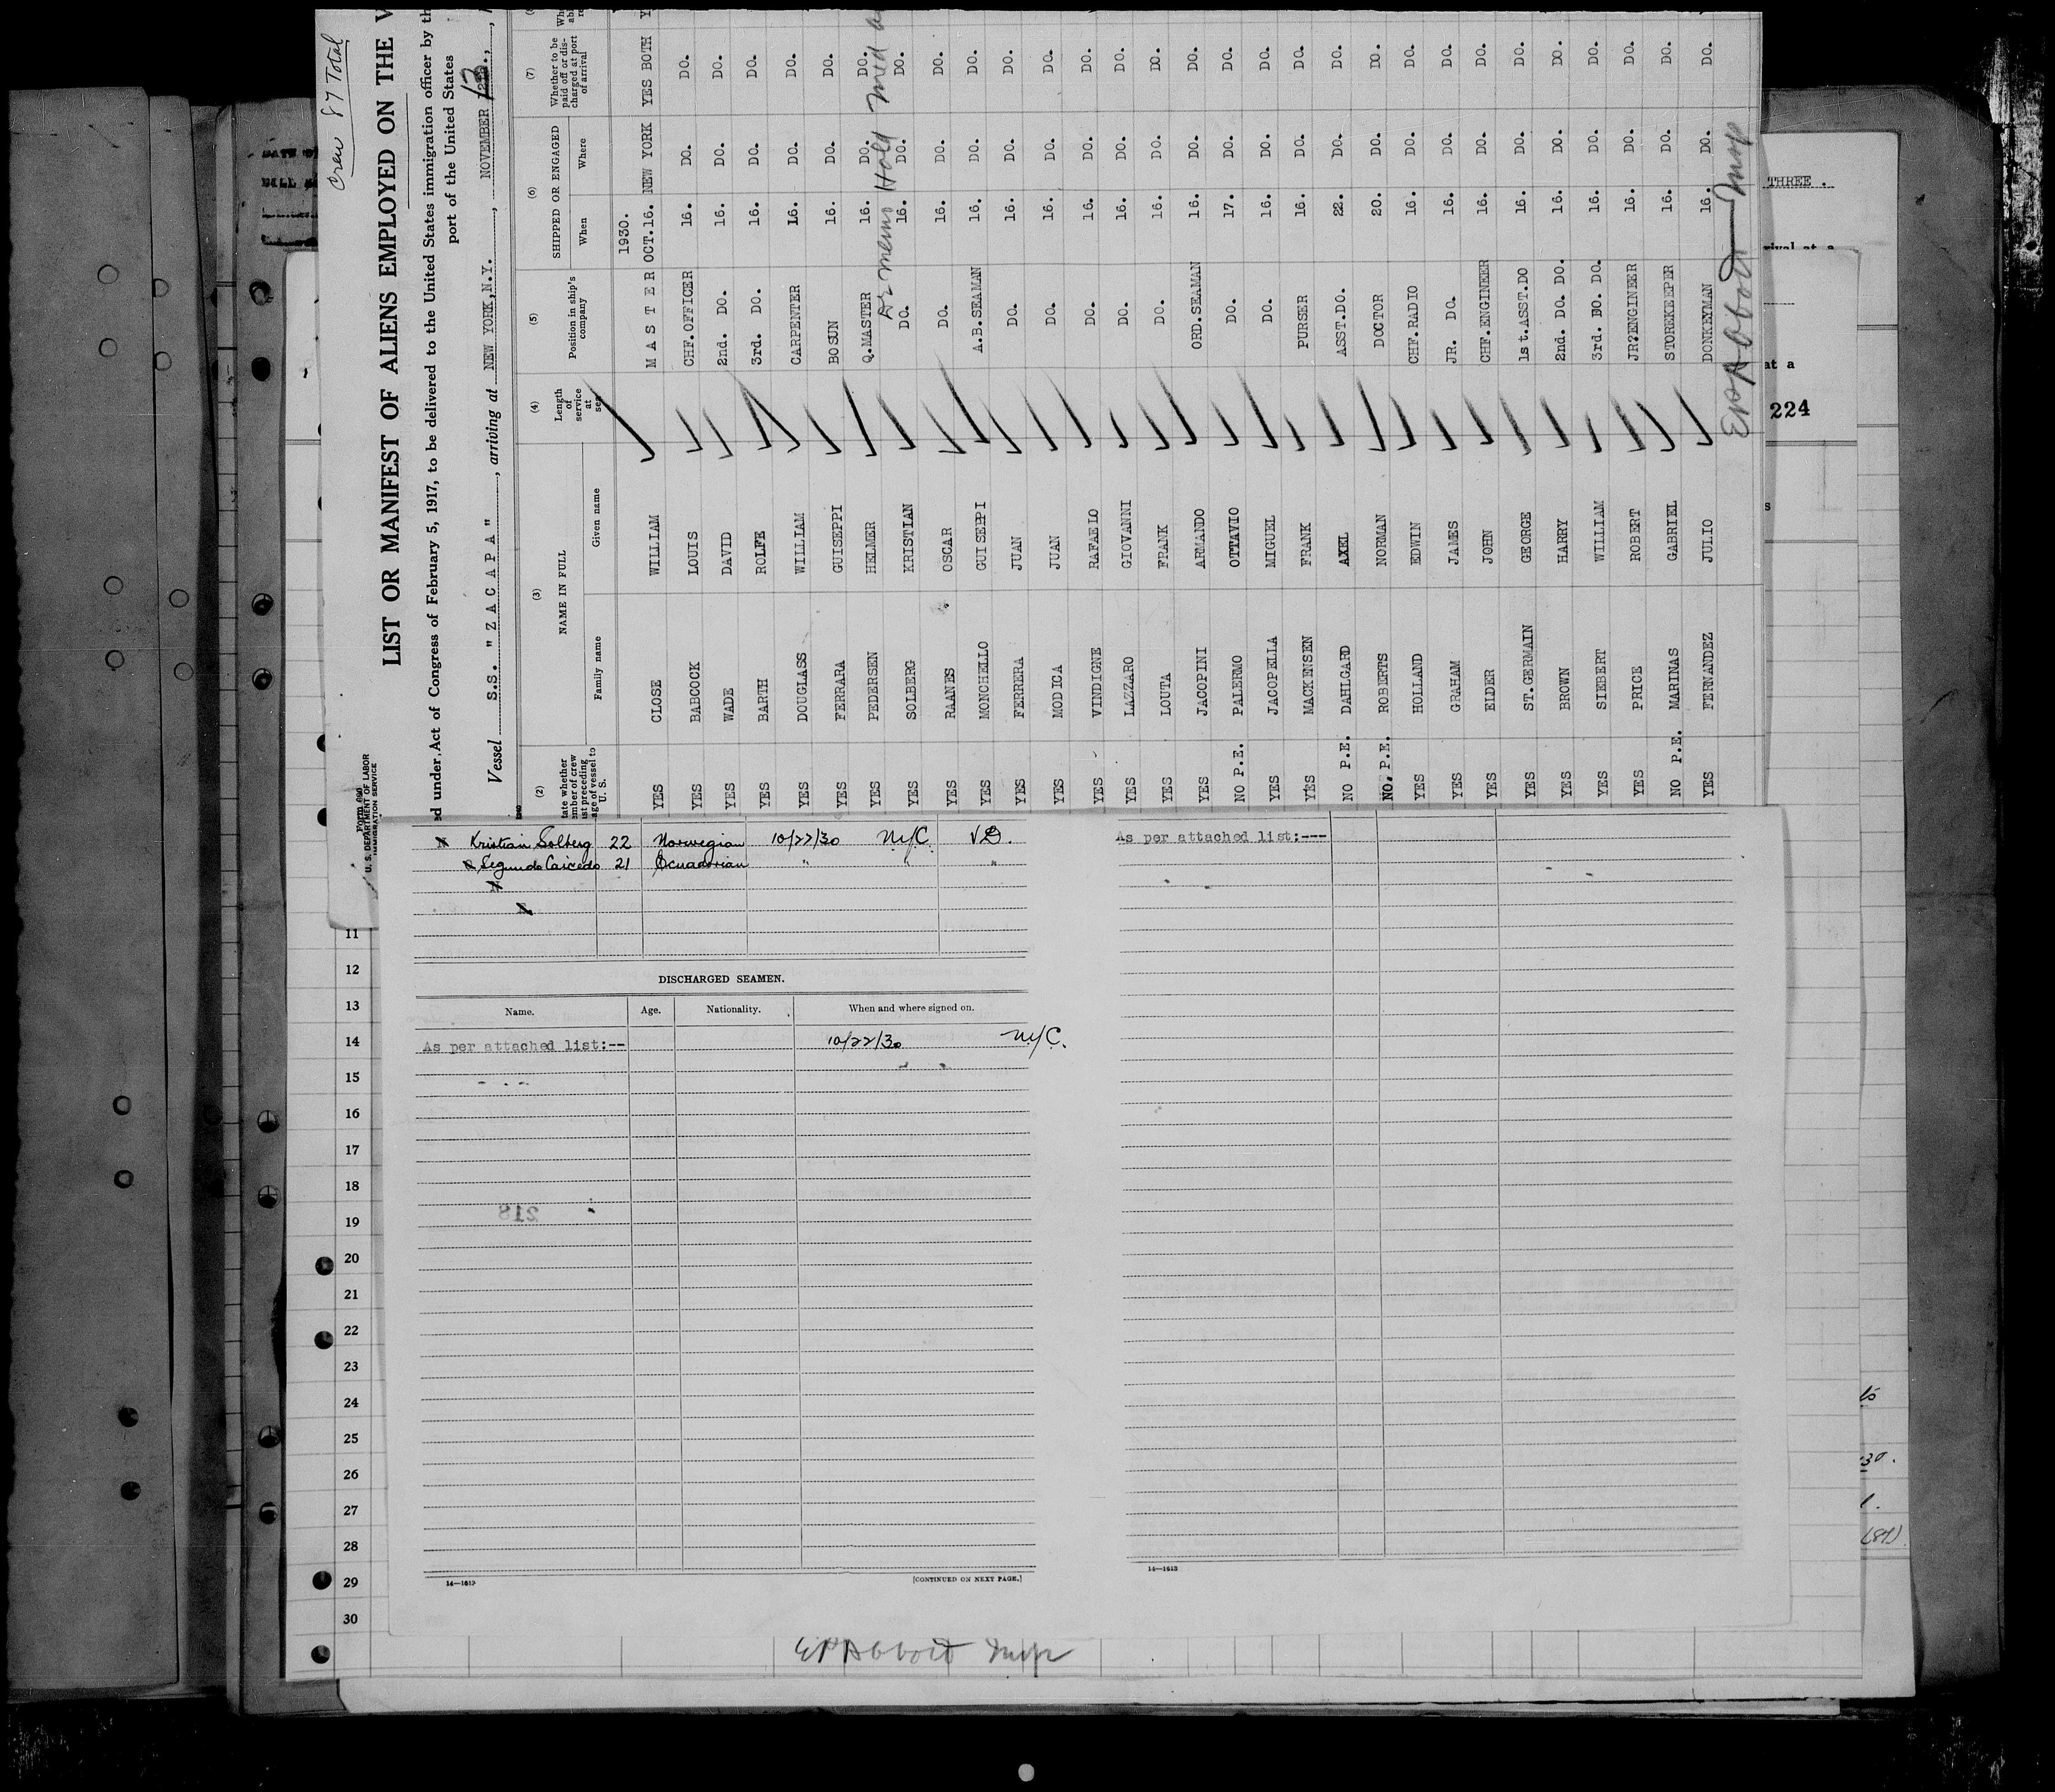 Crew 87 Total
LIST OR MANIFEST OF ALIENS EMPLOYED ON THE V
ed under Act of Congress of February 5, 1917, to be delivered to the United States immigration officer by th
port of the United States
Vessel S.S. "Z A C A P A", arriving at NEW YORK,N.Y., NOVEMBER 13
Form 680
U. S. DEPARTMENT OF LABOR
IMMIGRATION SERVICE
(2) (3) (4) (5) (6) (7)
NAME IN FULL
Family name Given name
Length of service at sea
Position in ship's company
SHIPPED OR ENGAGED
When Where
Whether to be paid off or discharged at port of arrival
1930.
YES CLOSE WILLIAM M A S T E R OCT.16. NEW YORK YES BOTH
YES BABCOCK LOUIS CHF.OFFICER 16. DO. DO.
YES WADE DAVID 2nd. DO. 16. DO. DO.
YES BARTH ROLFE 3rd. DO. 16. DO. DO.
YES DOUGLASS WILLIAM CARPENTER 16. DO. DO.
YES FERRARA GUISEPPI BOSUN 16. DO. DO.
YES PEDERSEN HELMER Q.MASTER 16. DO. DO.
YES SOLBERG KRISTIAN DO. 16. DO. DO.
YES RAANES OSCAR DO. 16. DO. DO.
YES MONCHELLO GUISEPPI A.B.SEAMAN 16. DO. DO.
YES FERRERA JUAN DO. 16. DO. DO.
YES MODICA JUAN DO. 16. DO. DO.
YES VINDIGNE RAFAELO DO. 16. DO. DO.
YES LAZZARO GIOVANNI DO. 16. DO. DO.
YES LOUTA FRANK DO. 16. DO. DO.
YES JACOPINI ARMANDO ORD.SEAMAN 16. DO. DO.
NO P.E. PALERMO OTTAVIO DO. 17. DO. DO.
YES JACOPELLA MIGUEL DO. 16. DO. DO.
YES MACKENSEN FRANK PURSER 16. DO. DO.
NO P.E. DAHLGARD AXEL ASST.DO. 22. DO. DO.
NO. P.E. ROBERTS NORMAN DOCTOR 20. DO. DO.
YES HOLLAND EDWIN CHF.RADIO 16. DO. DO.
YES GRAHAM JAMES JR. DO. 16. DO. DO.
YES ELDER JOHN CHF.ENGINEER 16. DO. DO.
YES ST.GERMAIN GEORGE 1st.ASST.DO 16. DO. DO.
YES BROWN HARRY 2nd. DO. DO. 16. DO. DO.
YES SIEBERT WILLIAM 3rd. DO. DO. 16. DO. DO.
YES PRICE ROBERT JR?ENGINER 16. DO. DO.
NO P.E. MARINAS GABRIEL STOREKEEPER 16. DO. DO.
YES FERNANDEZ JULIO DONKEYMAN 16. DO. DO.
Dr memo Hold med
EPAbbott Insp
THREE.
rival at a
at a
224
s
Kristian Solberg 22 Norwegian 10/22/30 NYC VD.
Segundo Caicedo 21 Ecuadorian " " "
As per attached list:---
DISCHARGED SEAMEN.
Name. Age. Nationality. When and where signed on.
As per attached list:-- 10/22/30 NYC.
218
14—1613 [CONTINUED ON NEXT PAGE.]
14—1613
11
12
13
14
15
16
17
18
19
20
21
22
23
24
25
26
27
28
29
30
30.
1.
(87)
EPAbbott Insp